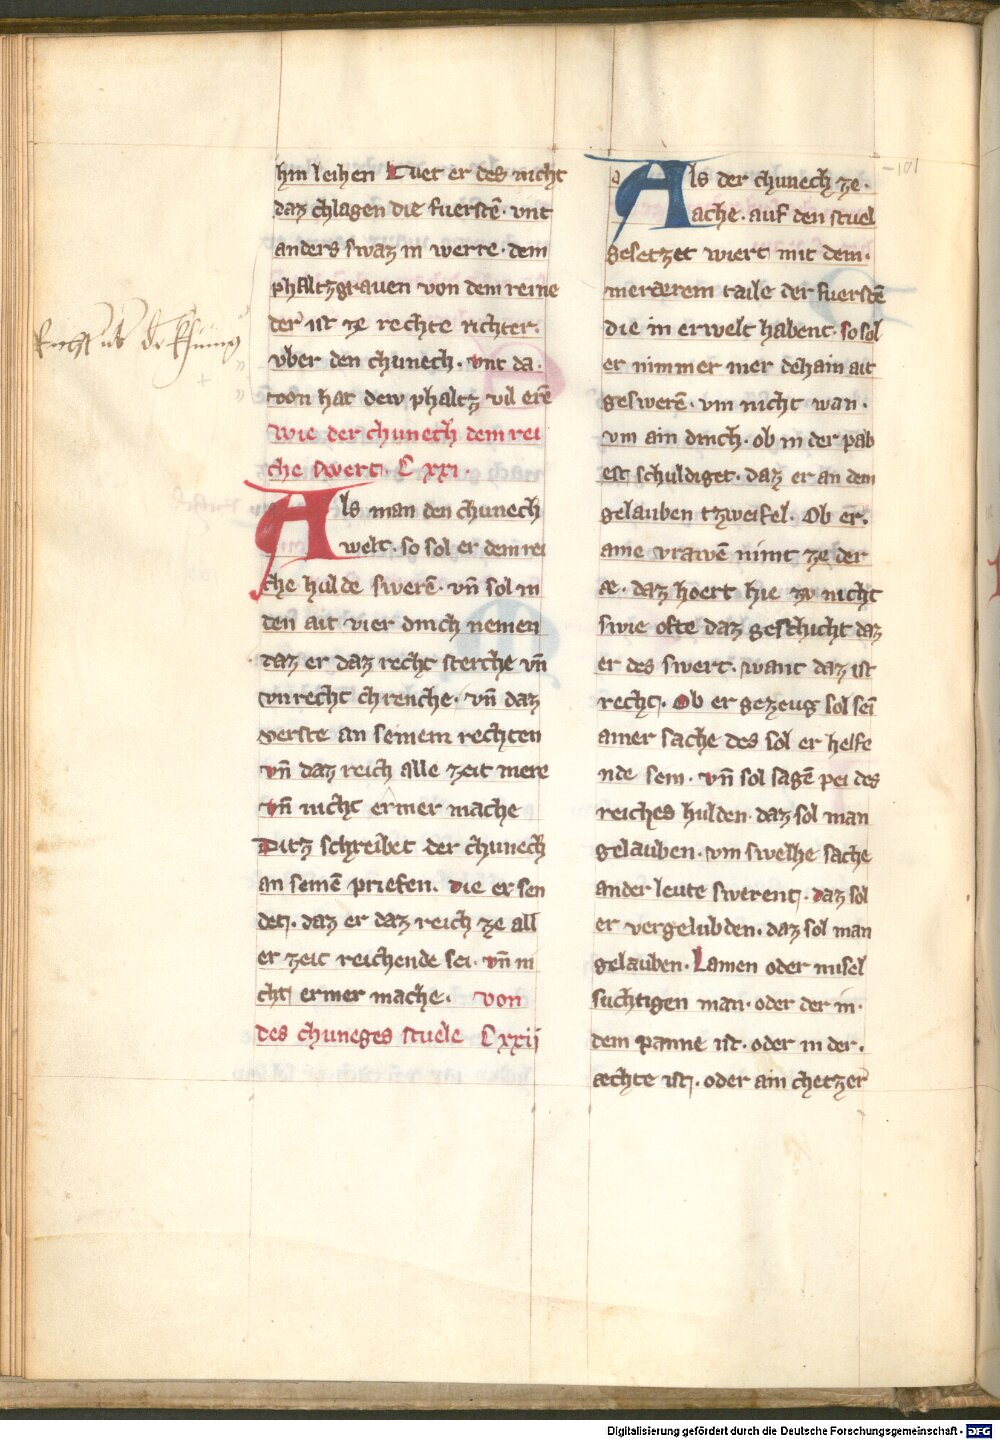 hin leihen Tuet er des nicht
daz chlagen die fuerstē· vnt
anders swaz in werre· dem
phaltzgrauen von dem reine
der ist ze rechte richter·
vber den chunech· vnt da·
von hat dew phaltz vil erē
wie der chunech dem rei
che swert· Cxxi·
Als man den chunech
welt· so sol er dem rei
che hulde swerē· vn̄ sol in
den ait vier dinch nemen
daz er daz recht sterche vn̄
vnrecht chrenche· vn̄ daz
verste an seinem rechten
vn̄ daz reich alle zeit mere
vn̄ nicht ermer mache
Ditz schreibet der chunech
an seinē priefen. die er sen
det· daz er daz reich ze all
er zeit reichende sei· vn̄ ni
cht ermer mache· von
des chuneges stuele Cxxij
Als der chunech ze·
ache· auf den stuel
gesetzet wiert mit dem·
mererem taile der fuerstē
die in erwelt habent· so sol
er nimmer mer dehain ait
geswerē· vm nicht wan·
vm ain dinch· ob in der pab
est schuldiget· daz er an dem
gelauben tzweifel· Ob er·
aine vrawē nimt ze der
æ· daz hoert hie zv nicht
swie ofte daz geschicht daz
er des swert· want daz ist
recht· Ob er gezeug sol sei
ainer sache des sol er helfe
nde sein· vn̄ sol sagē pei des
reiches hulden· daz sol man
gelauben· vm swelhe sache
ander leute swerent· daz sol
er vergelubden· daz sol man
gelauben· Lamen oder misel
suchtigen man· oder der in·
dem panne ist· oder in der·
æchte ist· oder ain chetzer
101
Digitalisierung gefördert durch die Deutsche Forschungsgemeinschaft - DFG